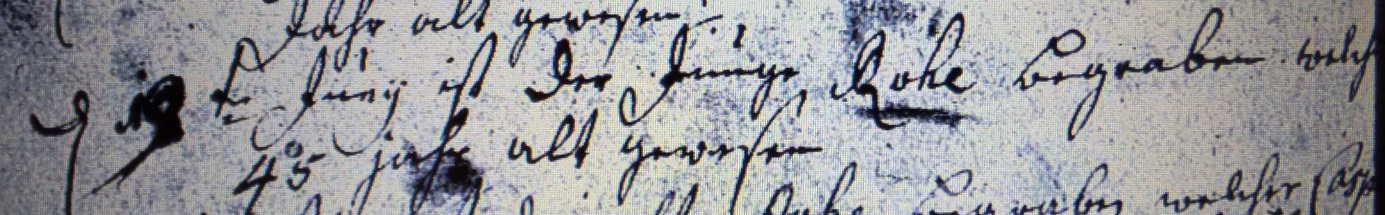 Jahr alt gewesen
d 19 te Juny ist der Junge Rohe begraben welch
45 jahr alt gewesen
begraben welcher